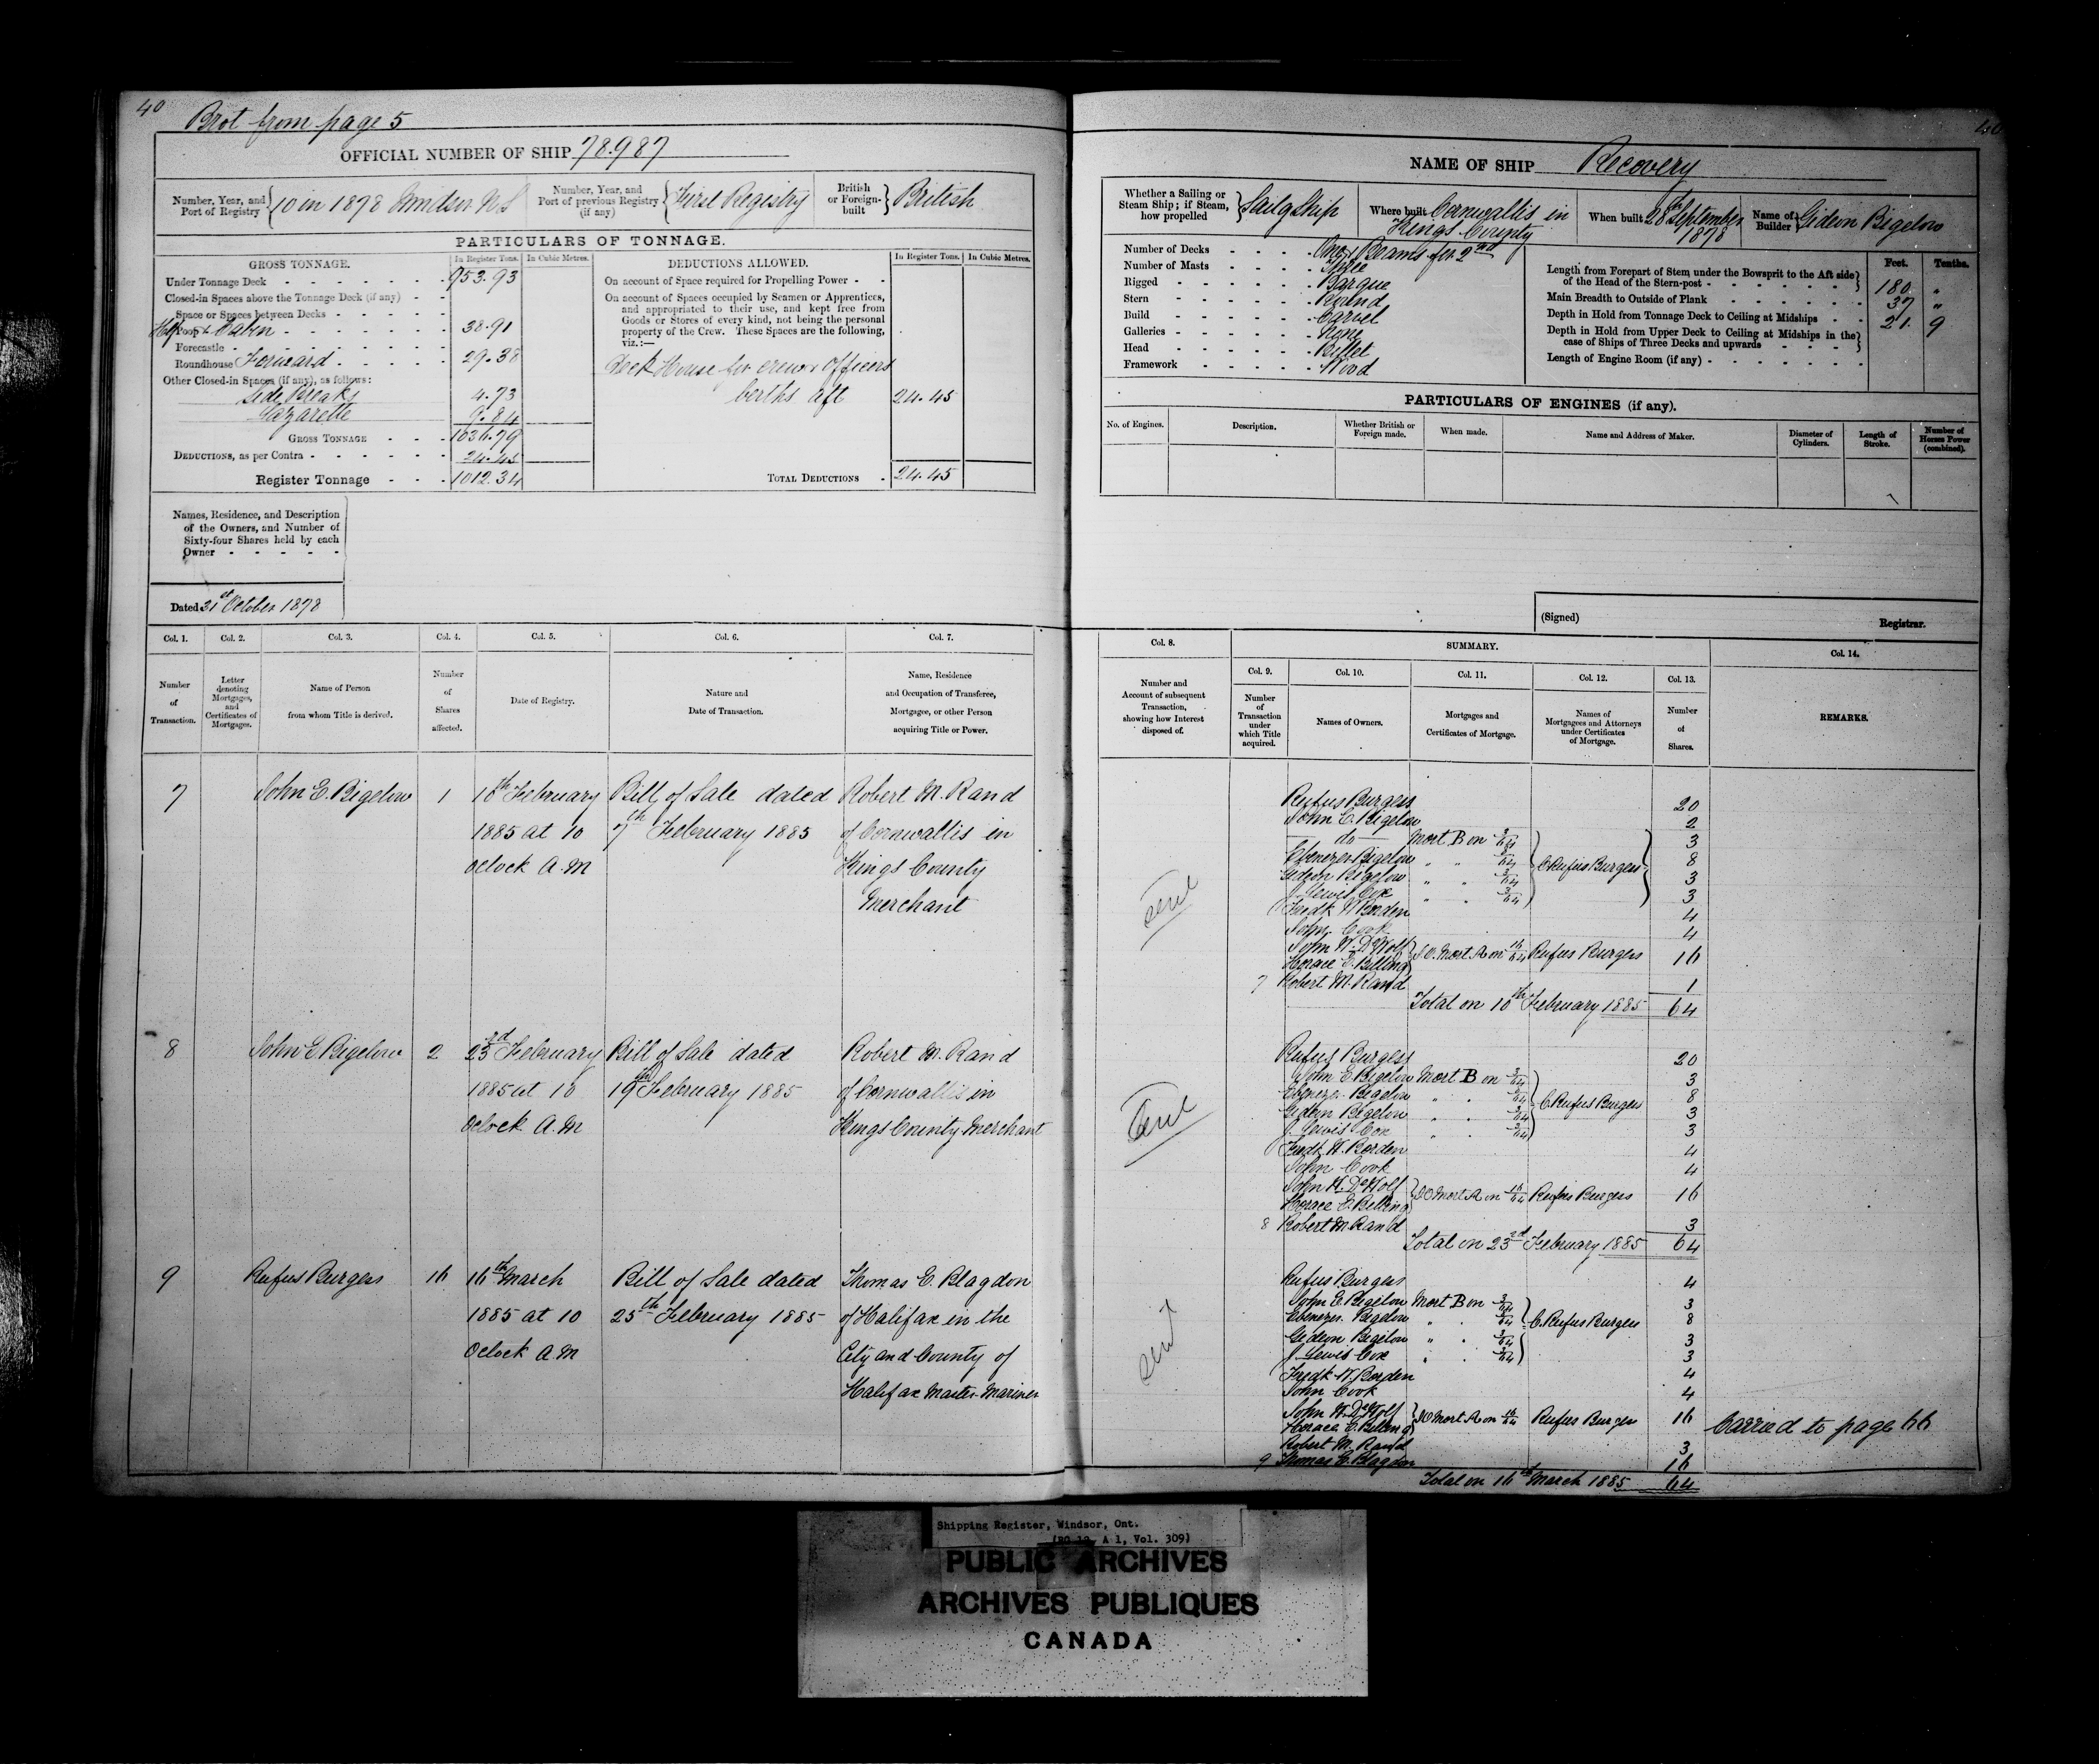 40
Brot from page 5
OFFICIAL NUMBER OF SHIP 78.987
Number, Year, and Port of Registry { 10 in 1878 Windsor NS
Number, Year, and Port of previous Registry (if any) { First Registry
British or Foreign-built } British
PARTICULARS OF TONNAGE.
GROSS TONNAGE.
In Register Tons. In Cubic Metres.
Under Tonnage Deck - 953.93
Closed-in Spaces above the Tonnage Deck (if any) - -
Space or Spaces between Decks - - - -
Half Poop & Cabin - - - - 38.91
Forecastle - - - -
Roundhouse Forward - - - 29.38
Other Closed-in Spaces (if any), as follows:
Side Breaks 4.73
Lazarette 9.84
GROSS TONNAGE - - - 1036.79
DEDUCTIONS, as per Contra - - - - 24.45
Register Tonnage - - - 1012.34
DEDUCTIONS ALLOWED.
In Register Tons. In Cubic Metres.
On account of Space required for Propelling Power - -
On account of Spaces occupied by Seamen or Apprentices,
and appropriated to their use, and kept free from
Goods or Stores of every kind, not being the personal
property of the Crew. These Spaces are the following,
viz.:—
Deck House for crew & Officers
berths aft 24.45
TOTAL DEDUCTIONS - 24.45
Names, Residence, and Description
of the Owners, and Number of
Sixty-four Shares held by each
Owner - - - - -
Dated 31st October 1878
Col. 1. Col. 2. Col. 3. Col. 4. Col. 5. Col. 6. Col. 7.
Number of Transaction.
Letter denoting Mortgages, and Certificates of Mortgages.
Name of Person from whom Title is derived.
Number of Shares affected.
Date of Registry.
Nature and Date of Transaction.
Name, Residence and Occupation of Transferee, Mortgagee, or other Person acquiring Title or Power.
7 John E. Bigelow 1 10th February Bill of Sale dated Robert M. Rand
1885 at 10 7th February 1885 of Cornwallis in
Oclock A.M Kings County
Merchant
8 John E Bigelow 2 23rd February Bill of Sale dated Robert M. Rand
1885 at 10 19th February 1885 of Cornwallis in
Oclock A.M Kings County Merchant
9 Rufus Burgess 16 16th March Bill of Sale dated Thomas E. Blagdon
1885 at 10 25th February 1885 of Halifax in the
Oclock A.M City and County of
Halifax Master Mariner
40
NAME OF SHIP Recovery
Whether a Sailing or Steam Ship; if Steam, how propelled } Sailg Ship
Where built Cornwallis in Kings County
When built 28th September 1878
Name of Builder } Gideon Bigelow
Number of Decks - - - - One & Beams for 2nd
Number of Masts - - - - Three
Rigged - - - - - Barque
Stern - - - - - Round
Build - - - - - Carvel
Galleries - - - - - None
Head - - - - - Billet
Framework - - - - - Wood
Feet. Tenths.
Length from Forepart of Stem under the Bowsprit to the Aft side of the Head of the Stern-post - } 180 "
Main Breadth to Outside of Plank - 37 "
Depth in Hold from Tonnage Deck to Ceiling at Midships - - 21. 9
Depth in Hold from Upper Deck to Ceiling at Midships in the case of Ships of Three Decks and upwards - - - - }
Length of Engine Room (if any) - - - - - - -
PARTICULARS OF ENGINES (if any).
No. of Engines.
Description.
Whether British or Foreign made.
When made.
Name and Address of Maker.
Diameter of Cylinders.
Length of Stroke.
Number of Horses Power (combined).
(Signed)
Registrar.
Col. 8.
SUMMARY.
Col. 14.
Col. 9. Col. 10. Col. 11. Col. 12. Col. 13.
Number and Account of subsequent Transaction, showing how Interest disposed of.
Number of Transaction under which Title acquired.
Names of Owners.
Mortgages and Certificates of Mortgage.
Names of Mortgagees and Attorneys under Certificates of Mortgage.
Number of Shares.
REMARKS.
Sent
Rufus Burgess 20
John E. Bigelow 2
do Mort B on 3/64 3
Ebenezer Bigelow " " 8/64 } C. Rufus Burgess 8
Gideon Bigelow " " 3/64 3
J. Lewis Cox " " 3/64 3
Fredk W Borden 4
John Cook 4
John W. DeWolf
Horace E. Belling } J.O. Mort A on 16/64 Rufus Burgess 16
7 Robert M. Rand 1
Total on 10th February 1885 64
Sent
Rufus Burgess 20
John E Bigelow Mort B on 3/64 3
Ebenezer Bigelow " " 8/64 } C. Rufus Burgess 8
Gideon Bigelow " " 3/64 3
J. Lewis Cox " " 3/64 3
Fredk W. Borden 4
John Cook 4
John W. DeWolf
Horace E. Belling } JO Mort A on 16/64 Rufus Burgess 16
8 Robert M Rand 3
Total on 23rd February 1885 64
Sent
Rufus Burgess 4
John E. Bigelow Mort B on 3/64 3
Ebenezer Bigelow " " 8/64 } C. Rufus Burgess 8
Gideon Bigelow " " 3/64 3
J. Lewis Cox " " 3/64 3
Fredk W. Borden 4
John Cook 4
John W. DeWolf
Horace E. Belling } JO Mort A on 16/64 Rufus Burgess 16 Carried to page 66
Robert M. Rand 3
9 Thomas E. Blagdon 16
Total on 16th March 1885 64
Shipping Register, Windsor, Ont.
(RG 12, A 1, Vol. 309)
PUBLIC ARCHIVES
ARCHIVES PUBLIQUES
CANADA